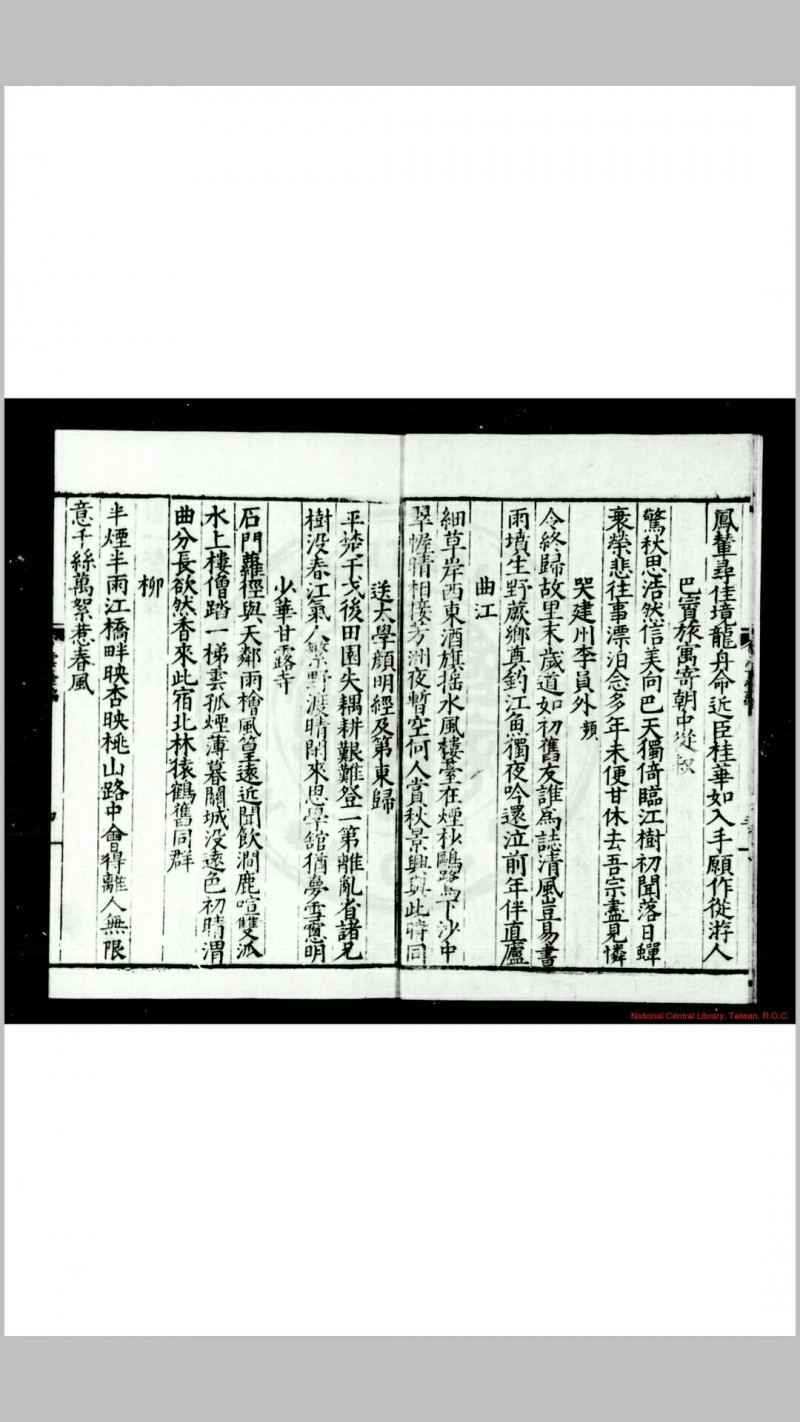 鳳輦尋佳境龍舟命近臣桂華如入手願作從游人
巴賨旅寓寄朝中從叔
驚秋思浩然信美向巴天獨倚臨江樹初聞落日蟬
裹榮悲往事漂泊念多年未便甘休去吾宗盡見憐
哭建州李員外頻
令終歸故里末歲道如初舊友誰爲誌清風豈易書
雨墳生野蕨鄉奠釣江魚獨夜吟還泣前年伴直廬
曲江
細草岸西東酒旗搖水風樓臺在煙杪鷗鷺下沙中
翠幄晴相接芳洲夜暫空何人賞秋景興與此時同
送太學顔明經及第東歸
平楚干戈後田園失耦耕艱難登一第離亂省諸兄
樹没春江氣人繁野渡晴閑來思學館猶夢雪窻明
少華甘露寺
石門蘿徑與天鄰雨檜風篁遠近聞飲澗鹿喧雙派
水上樓僧踏一梯雲孤煙薄暮關城没遠色初晴渭
曲分長欲然香來此宿北林猿鶴舊同群
柳
半煙半雨江橋畔映杏映桃山路中會得離人無限
意千絲萬絮惹春風
National Central Library, Taiwan, R.O.C.